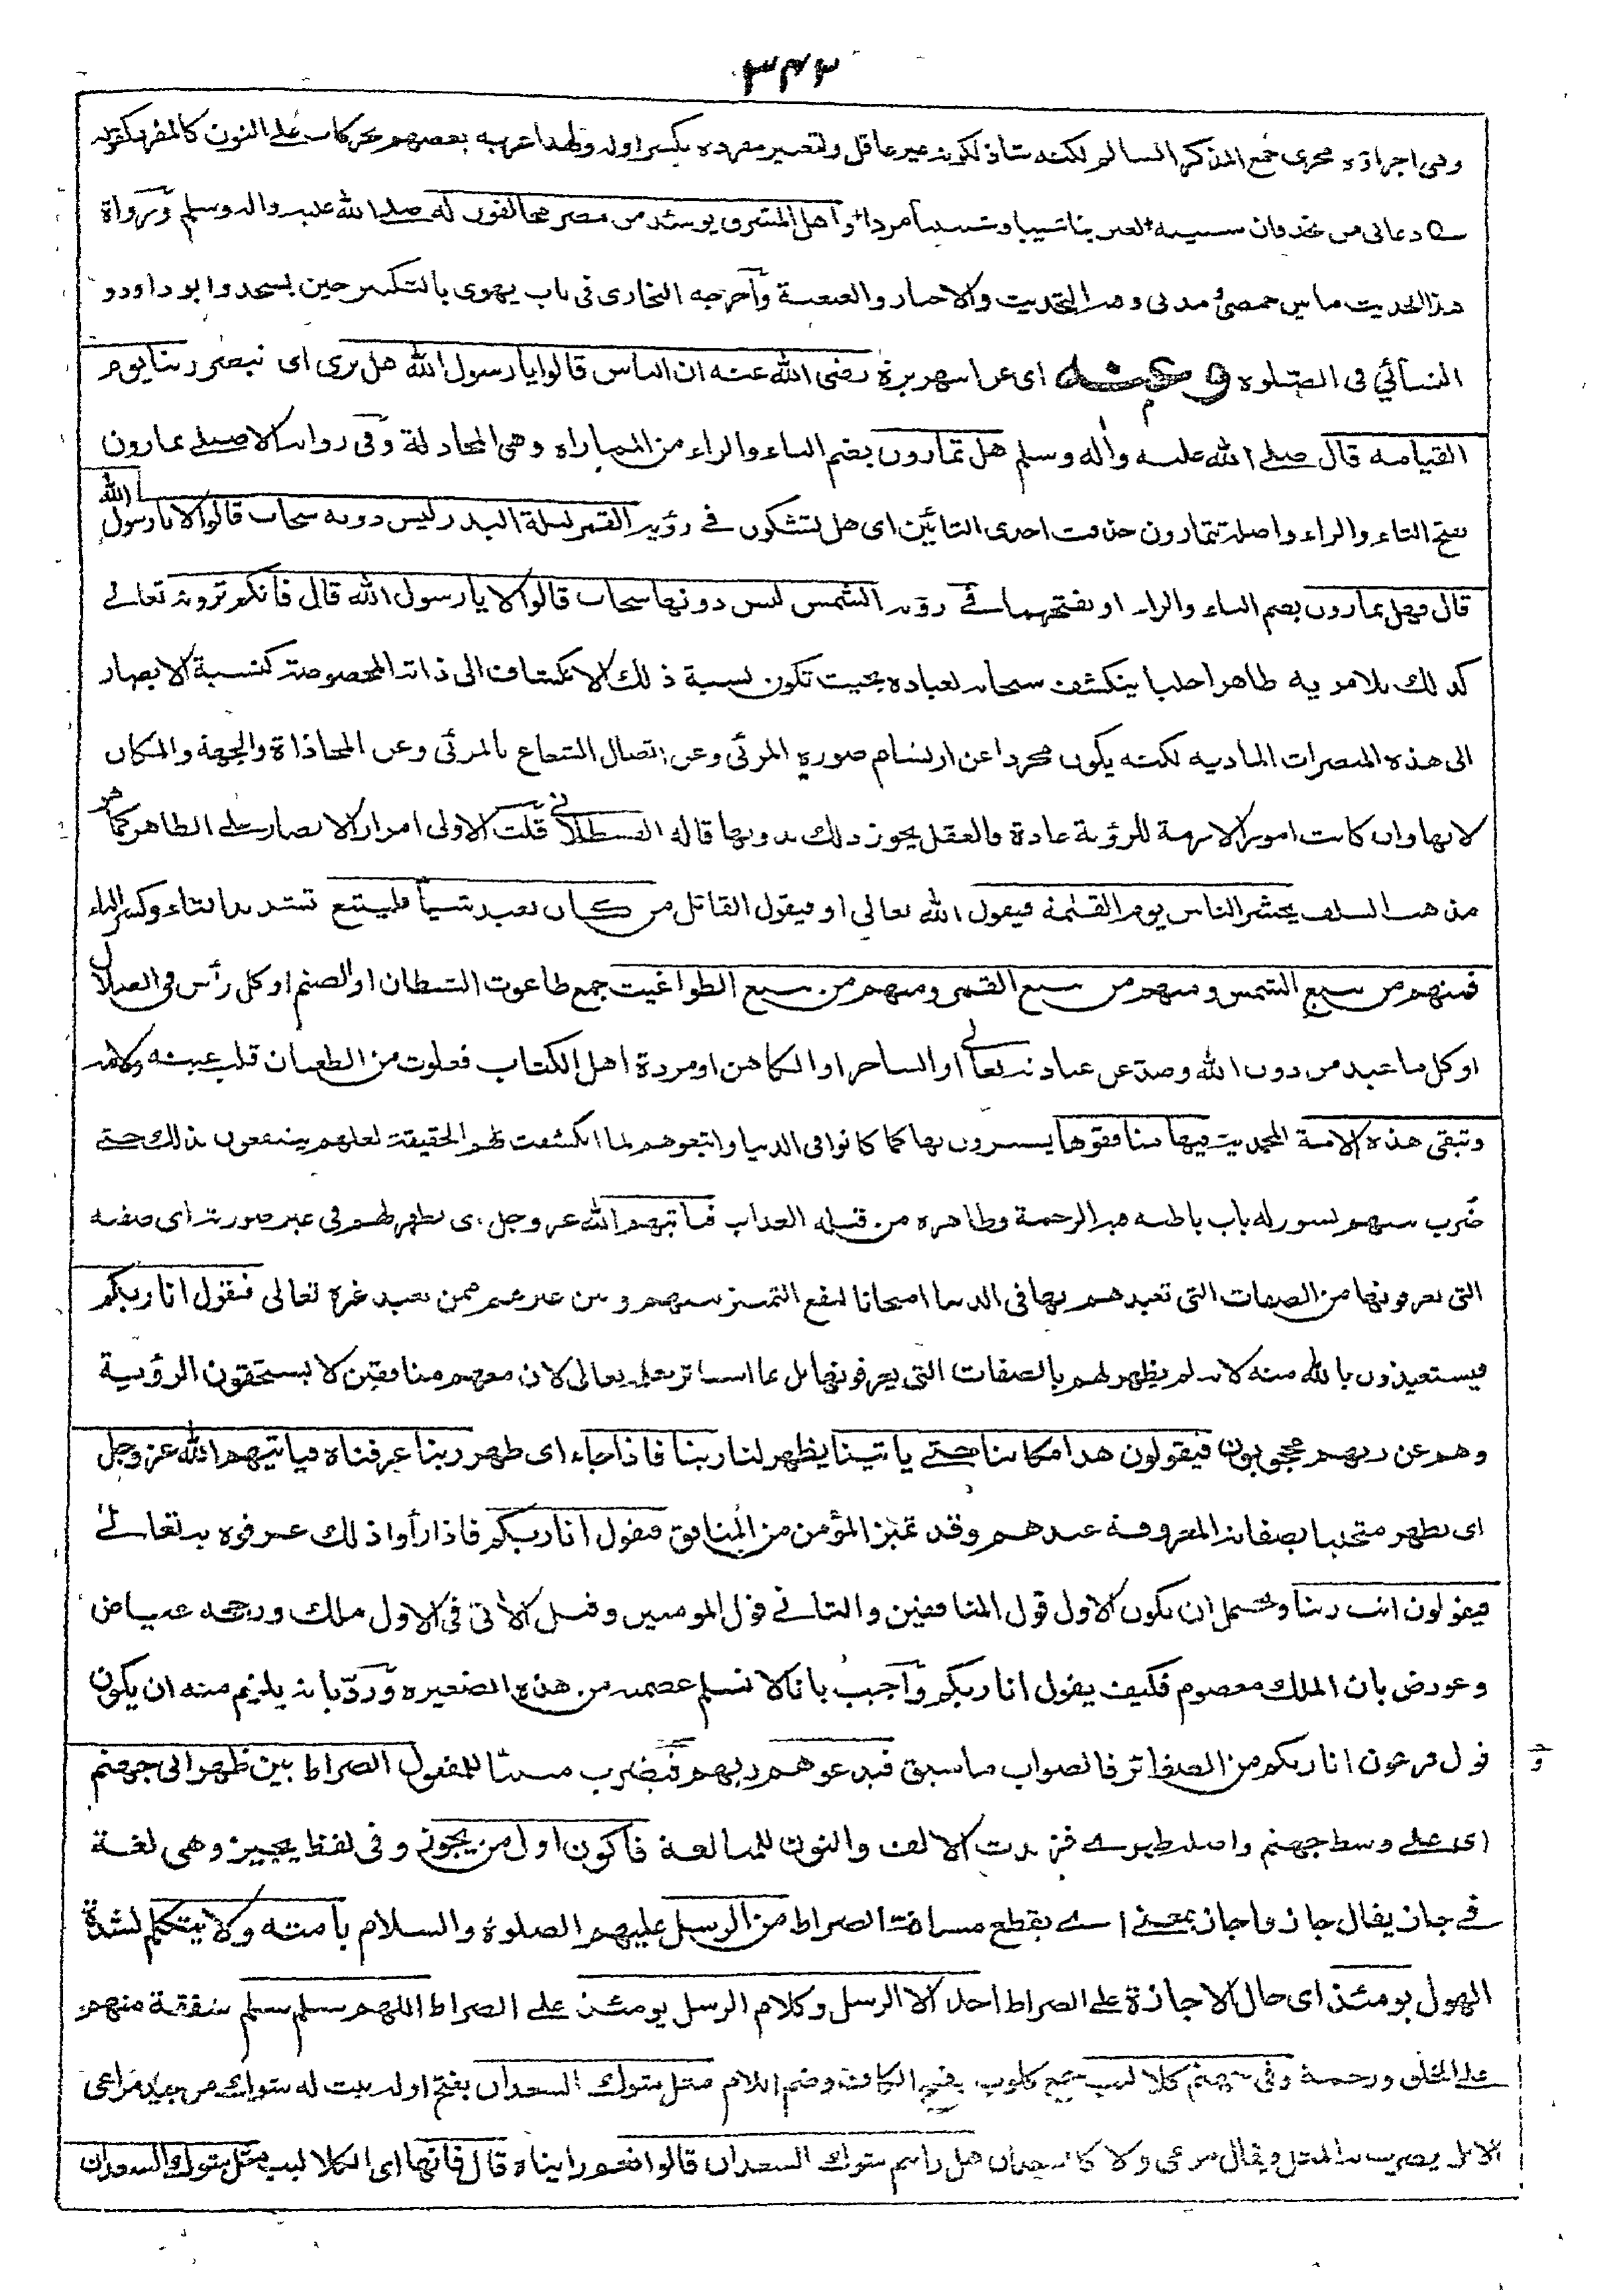 ٣٤٣
وفى اجرائه مجرى جمع المذكر السالم لكنه شاذ لكونه غير عاقل ولتغيير مفرده بكسر اوله ولهذا اعربه بعضهم بحركات على النون كالمفرد كقوله
دعانى من نجد فان سنينه لعبن بنا شيبا وشيبننا مردا واهل المشرق يومئذ من مضر مخالفون له صلى الله عليه واله وسلم ورواة
هذا الحديث ما بين حمصى ومدنى وفيه التحديث والاخبار والعنعنة وآخرجه البخارى فى باب يهوى بالتكبير حين يسجد وابو داود و
النسائي فى الصلوة وعنه اى عن ابى هريرة رضى الله عنه ان الناس قالوا يا رسول الله هل نرى اى نبصر ربنا يوم
القيامه قال صلے الله عليه واله وسلم هل تمارون بضم التاء والراء من المماراه وهى المجادلة وفى رواية الاصيلے تمارون
بفتح التاء والراء واصله تتمارون حذفت احدى التائين اى هل تشكون في رؤية القمر ليلة البدر ليس دونه سحاب قالوا لا يا رسول الله
قال فهل تمارون بضم التاء والراء او بفتحهما فے رؤية الشمس ليس دونها سحاب قالوا لا يا رسول الله قال فانكم ترونه تعالے
كذلك بلا مرية ظاهرا جليا ينكشف سبحانه لعباده بحيث تكون نسبة ذلك الانكشاف الى ذاته المخصوصة كنسبة الابصار
الى هذه المبصرات الماديه لكنه يكون مجردا عن ارتسام صورة المرئى وعن اتصال الشعاع بالمرئى وعن المحاذاة والجهة والمكان
لانها وان كانت امورا لازمة للرؤية عادة فالعقل يجوز ذلك بدونها قاله القسطلانى قلت الاولى امرار الابصار على الظاهر كما هو
مذهب السلف يحشر الناس يوم القيمة فيقول الله تعالى او فيقول القائل من كان يعبد شيأ فليتبع تشديد التاء وكسر الباء
فمنهم من يتبع الشمس ومنهم من يتبع القمر ومنهم من يتبع الطواغيت جمع طاغوت الشيطان او الصنم او كل رأس فى الضلال
او كل ما عبد من دون الله وصد عن عبادته تعالى او الساحر او الكاهن او مردة اهل الكتاب فعلوت من الطغيان قلب عينه ولامه
وتبقى هذه الامة المحمدية فيها منافقوها يستترون بها كما كانوا فى الدنيا واتبعوهم لما انكشفت لهم الحقيقة لعلهم ينتفعون بذلك حتے
ضرب بينهم بسور له باب باطنه فيه الرحمة وظاهره من قبله العذاب فيأتيهم الله عز وجل اى يظهر لهم فى غير صورته اى صفته
التى يعرفونها من الصفات التى تعبدهم بها فى الدنيا امتحانا ليقع التمييز بينهم وبين غيرهم ممن يعبد غيره تعالى فيقول انا ربكم
فيستعيذون بالله منه لانه لم يظهر لهم بالصفات التى يعرفونها بل بما استأثر بعلمه تعالى لان معهم منافقين لا يستحقون الرؤية
وهم عن ربهم محجوبون فيقولون هذا مكاننا حتے يأتينا يظهر لنا ربنا فاذا جاء اى ظهر ربنا عرفناه فيأتيهم الله عز وجل
اى يظهر متجليا بصفاته المعروفة عندهم وقد تميز المؤمن من المنافق فيقول انا ربكم فاذا رأوا ذلك عرفوه به تعالے
فيقولون انت ربنا ويحتمل ان يكون الاول قول المنافقين والثانے قول المومنين وقيل الآتى فى الاول ملك ورجحه عياض
وعورض بان الملك معصوم فكيف يقول انا ربكم وآجيب بانا لا نسلم عصمته من هذه الصغيره وردّ بانه يلزم منه ان يكون
قول فرعون انا ربكم من الصغائر فالصواب ما سبق فيدعوهم ربهم فيضرب مبنيا للمفعول الصراط بين ظهرانى جهنم
اى على وسط جهنم واصله ظهرے فزيدت الالف والنون للمبالغة فأكون اول من يجوز وفى لفظ يجيز وهى لغة
فے جاز يقال جاز واجاز بمعنے اے يقطع مسافة الصراط من الرسل عليهم الصلوة والسلام بأمته ولا يتكلم لشدة
الهول يومئذ اى حال الاجازة على الصراط احد الا الرسل وكلام الرسل يومئذ علے الصراط اللهم سلم سلم شفقة منهم
على الخلق ورحمة وفى جهنم كلاليب جمع كلوب بفتح الكاف وضم اللام مثل شوك السعدان بفتح اوله نبت له شوك من جيد مراعى
الابل يضرب به المثل ويقال مرعى ولا كالسعدان هل رأيتم شوك السعدان قالوا نعم رايناه قال فانها اى الكلاليب مثل شوك السعدان